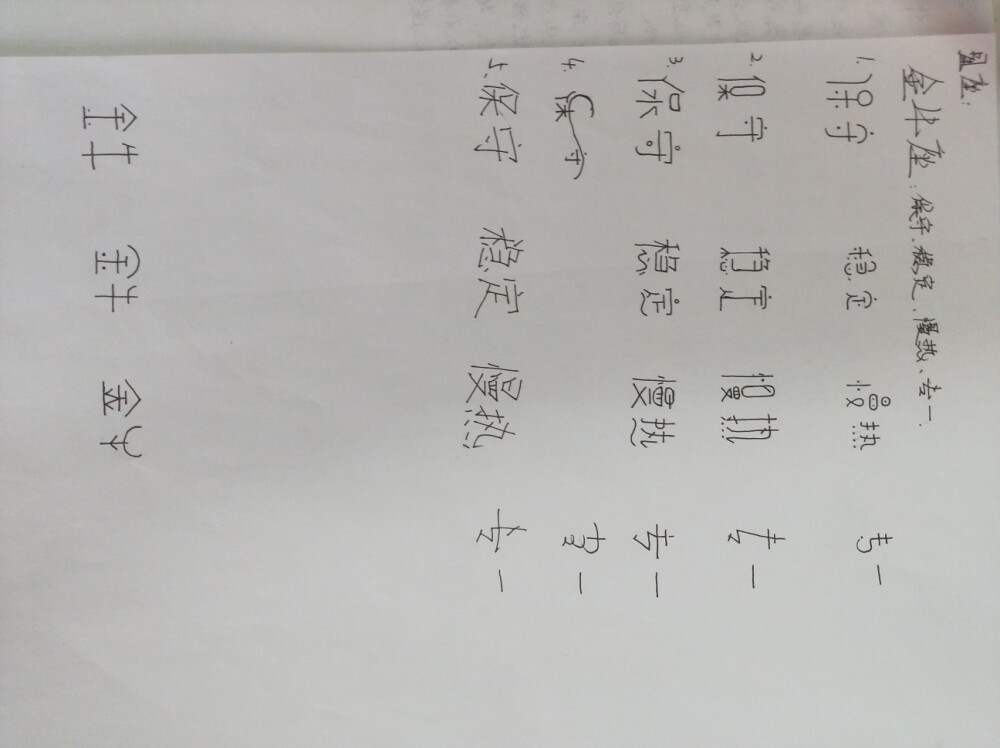 星座:
金牛座:保守、稳定、慢热、专一.
1. 保守 稳定 慢热 专一
2. 保守 稳定 慢热 专一
3. 保守 稳定 慢热 专一
4. 保守 专一
5. 保守 稳定 慢热 专一
金牛 金牛 金牛